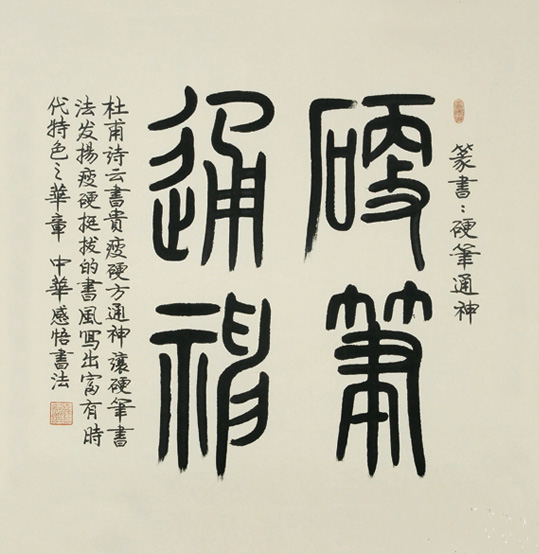 篆書：硬筆通神
硬筆
通神
杜甫诗云書貴瘦硬方通神讓硬筆書
法发揚瘦硬挺拔的書風寫出富有時
代特色之華章 中華感悟書法